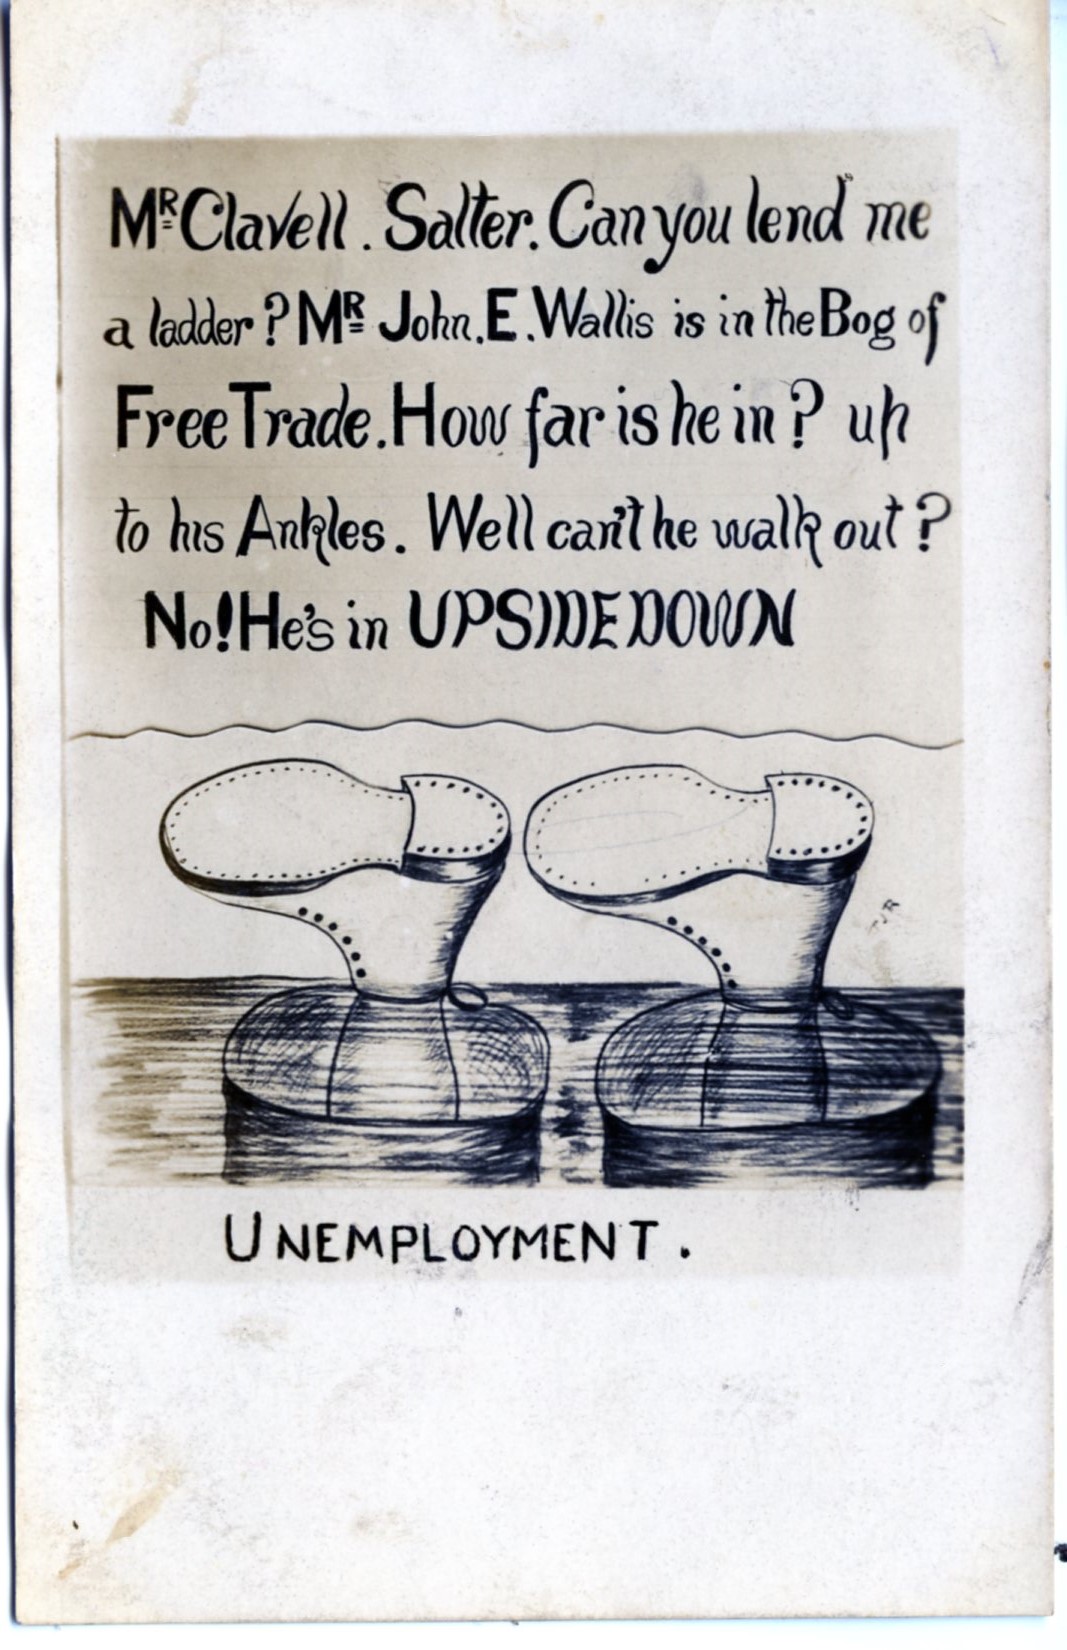 MR Clavell. Salter. Can you lend me
a ladder? MR John. E. Wallis is in the Bog of
Free Trade. How far is he in? up
to his Ankles. Well can't he walk out?
No! He's in UPSIDE DOWN
TJR
UNEMPLOYMENT.